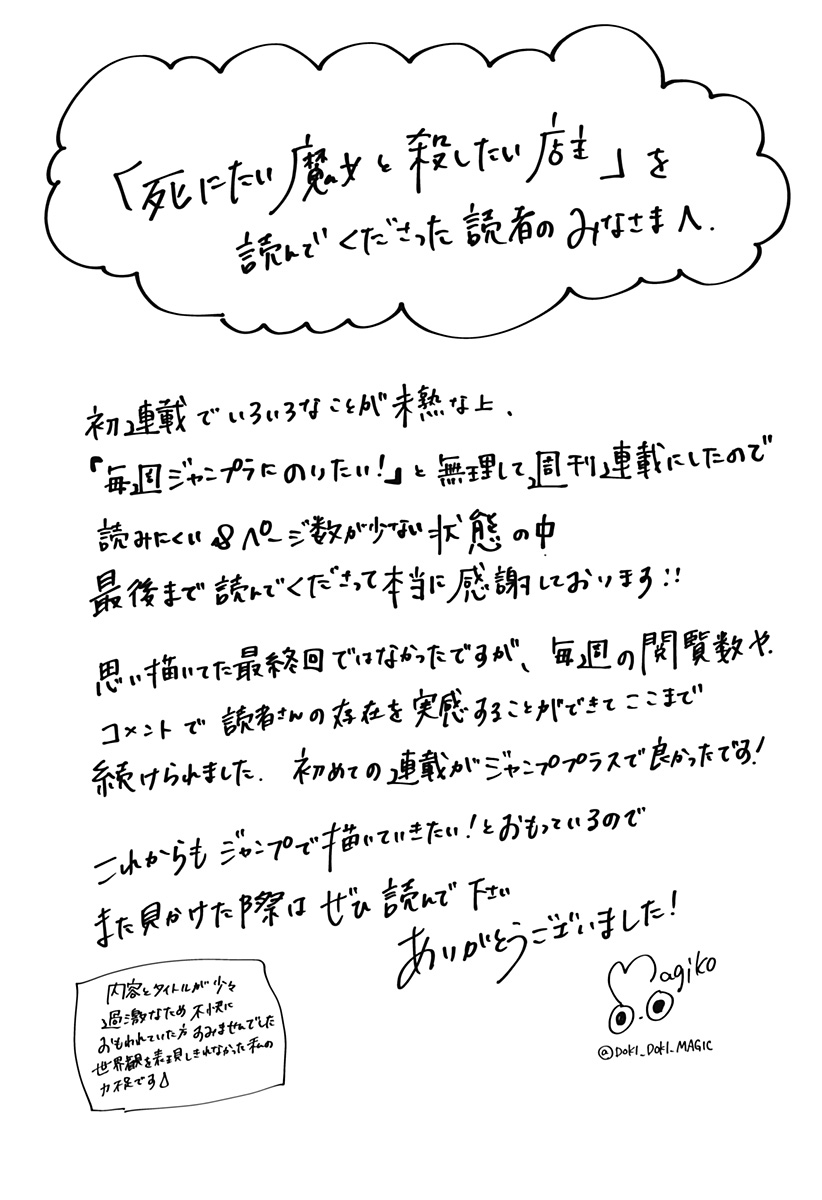 「死にたい魔女と殺したい店主」を
読んでくださった読者のみなさまへ.
初連載でいろいろなことが未熟な上、
「毎週ジャンプラにのりたい!」と無理して週刊連載にしたので
読みにくい&ページ数が少ない状態の中
最後まで読んでくださって本当に感謝しております!!
思い描いてた最終回ではなかったですが、毎週の閲覧数や
コメントで読者さんの存在を実感することができてここまで
続けられました. 初めての連載がジャンププラスで良かったです!
これからもジャンプで描いていきたい!とおもっているので
また見かけた際はぜひ読んで下さい
ありがとうございました!
Magiko
@DOKI_DOKI_MAGIC
内容とタイトルが少々
過激なため不快に
おもわれていた方すみませんでした
世界観を表現しきれなかった私の
力不足です